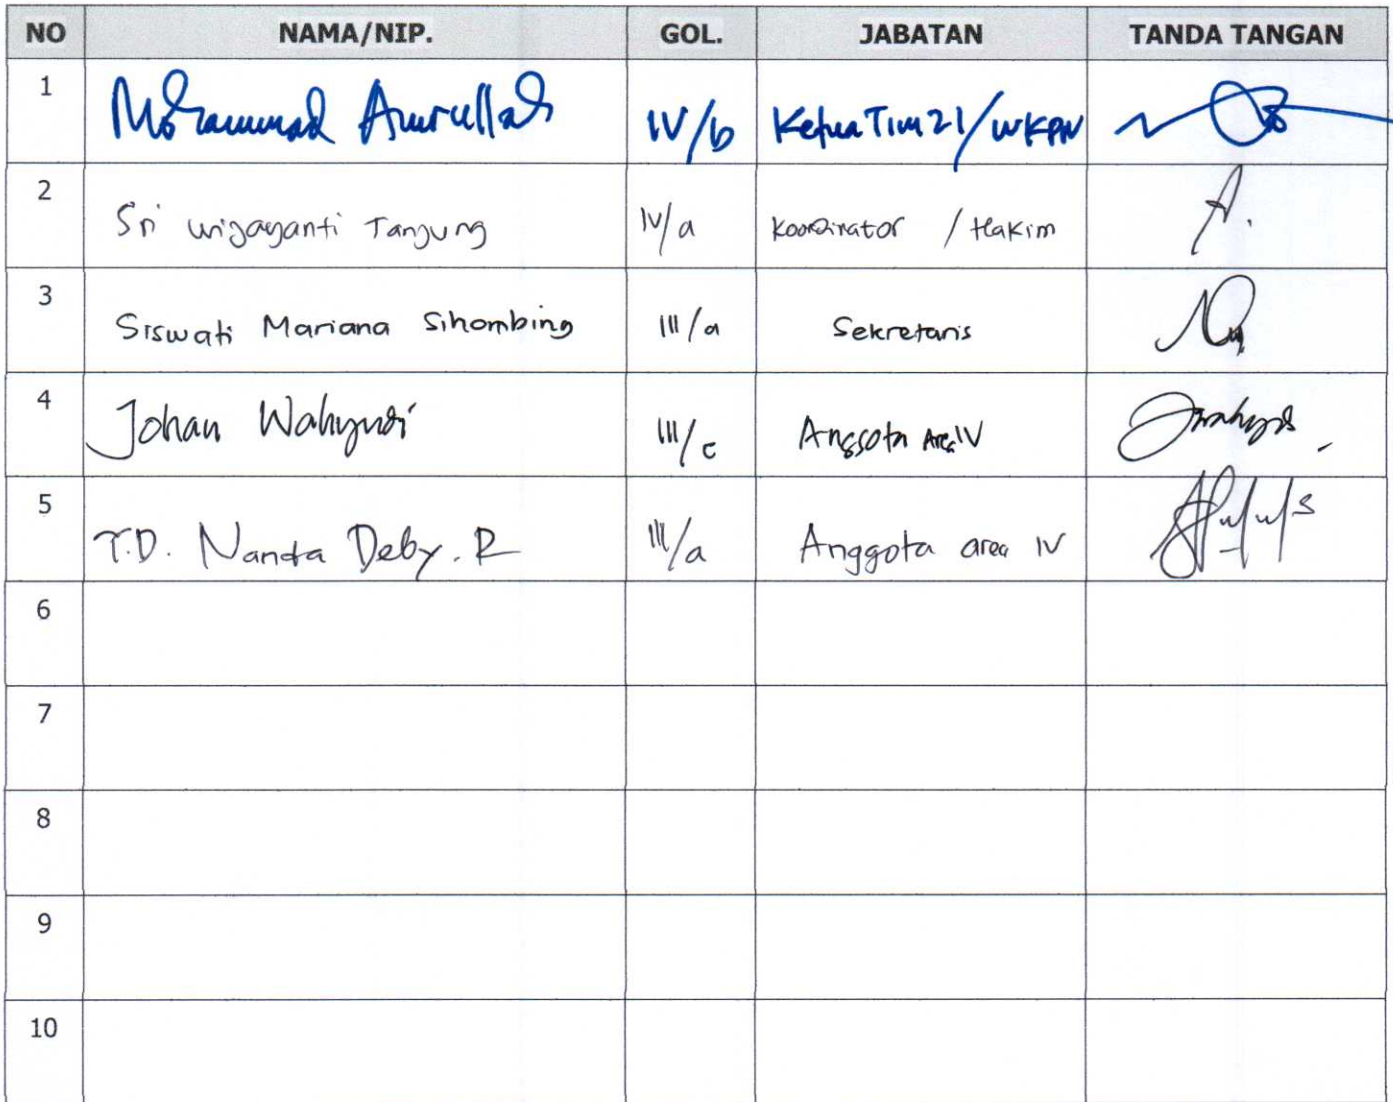 NO NAMA/NIP. GOL. JABATAN TANDA TANGAN
1 Mohammad Amrullah IV/b Ketua Tim 21/WKPN
2 Sri Wijayanti Tanjung IV/a Koordinator / Hakim
3 Siswati Mariana Sihombing III/a Sekretaris
4 Johan Wahyudi III/c Anggota Area IV
5 T.D. Nanda Deby. R III/a Anggota area IV
6
7
8
9
10